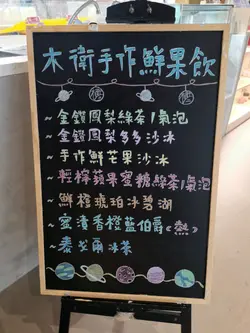 木衛手作鮮果飲
~金鑽鳳梨綠茶/氣泡
~金鑽鳳梨多多沙冰
~手作鮮芒果沙冰
~輕檸蘋果蜜糖綠茶/氣泡
~鮮橙琥珀冰碧湖
~蜜漬香橙藍伯爵《熱》
~素芝爾冰茶